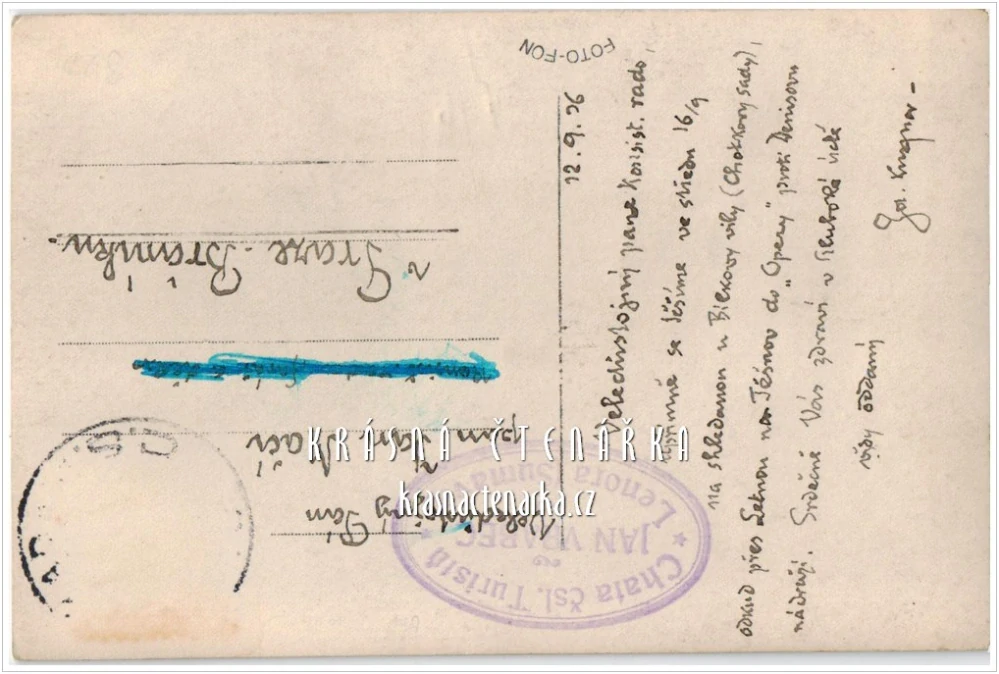 FOTO-FON
12.9.36
Veledůstojný pane Konsist. rado,
upřímně se těšíme ve středu 16/9
na shledanou u Bílkovy vily (Chotkovy sady),
odkud přes Letnou na Těšnov do „Opery" proti Denisovu
nádraží. Srdečně Vás zdraví v hluboké úctě
vždy oddaný
Jos.
Veledůstojný Pán
pan Jan
v Praze-Braníku
Chata čsl. Turistů
JAN VRABEC
Lenora (Šumava)
KRÁSNÁ ČTENÁŘKA
krasnactenarka.cz